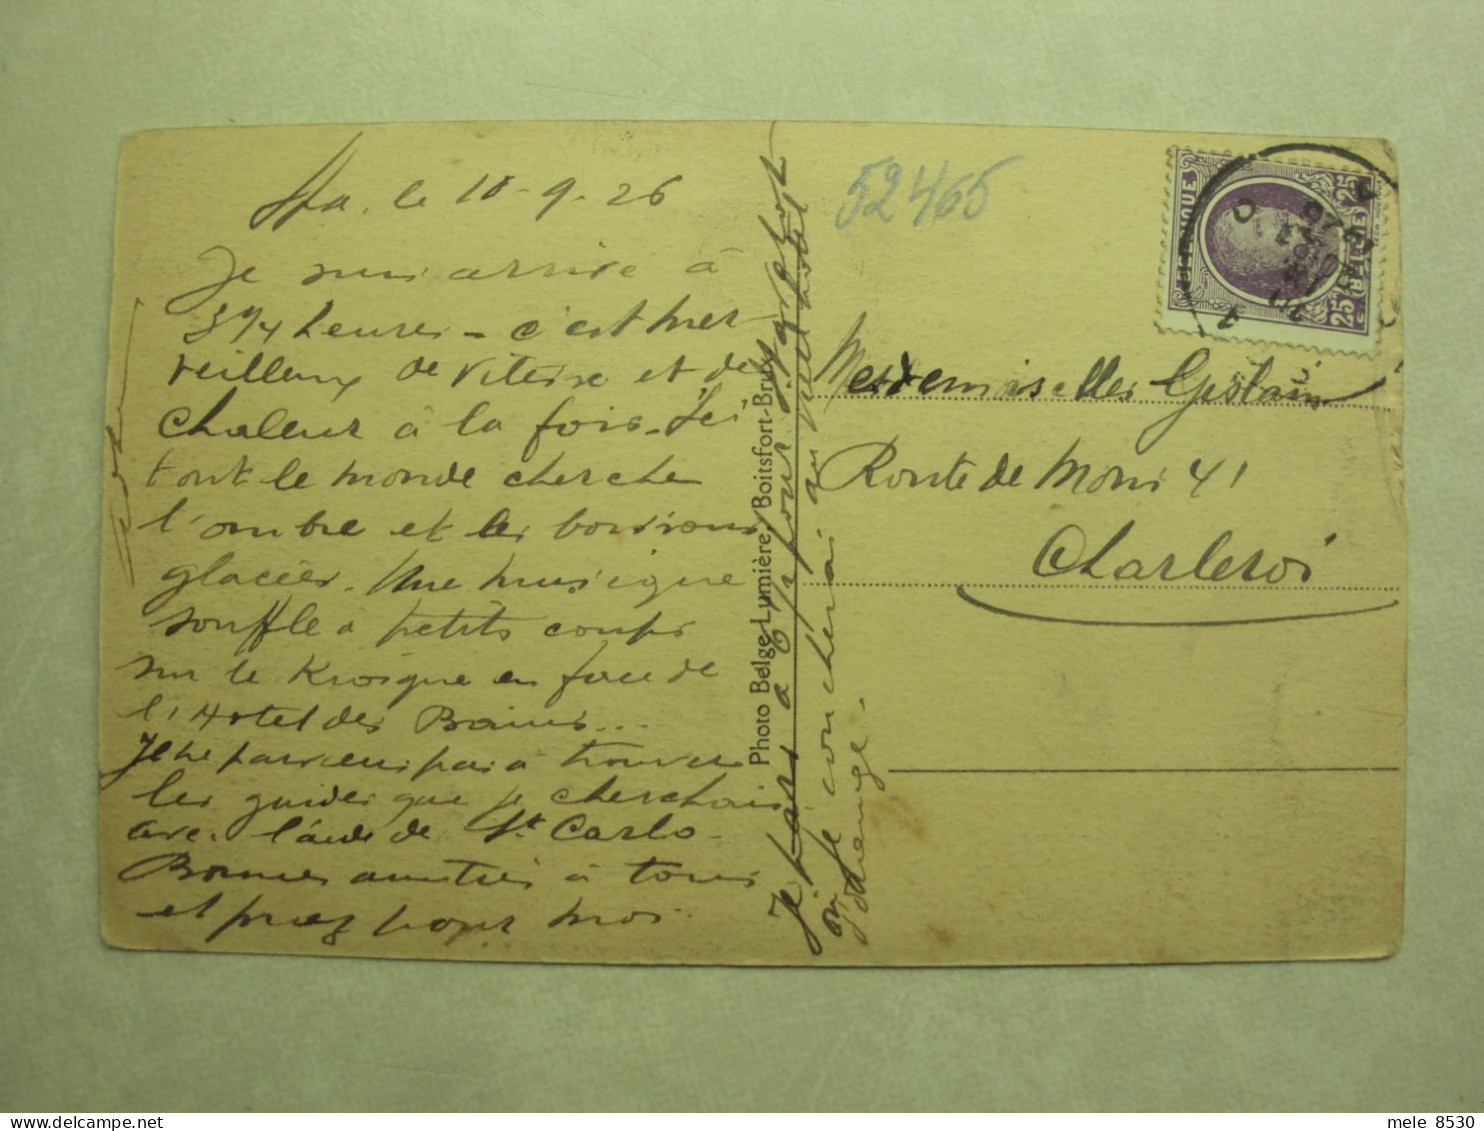 Spa. le 18-9-26
Je suis arrivé à
3 3/4 heures - c'est mer-
veilleux de vitesse et de
chaleur à la fois. Ici
tout le monde cherche
l'ombre et les boissons
glacées. Une musique
souffle à petits coups
sur le Kiosque en face de
l'Hotel des Bains...
Je ne parviens pas à trouver
les guides que je cherchais
avec l'aide de St Carlo
Bonnes amitiés à tous
et priez pour moi.
Je pars à 6 h pour
où je coucherai au
Photo Belge Lumière, Boitsfort-Brux.
52465
BELGIQUE
BELGIE
25c 25c
Mesdemoiselles Gislain
Route de Mons 41
Charleroi
mele 8530